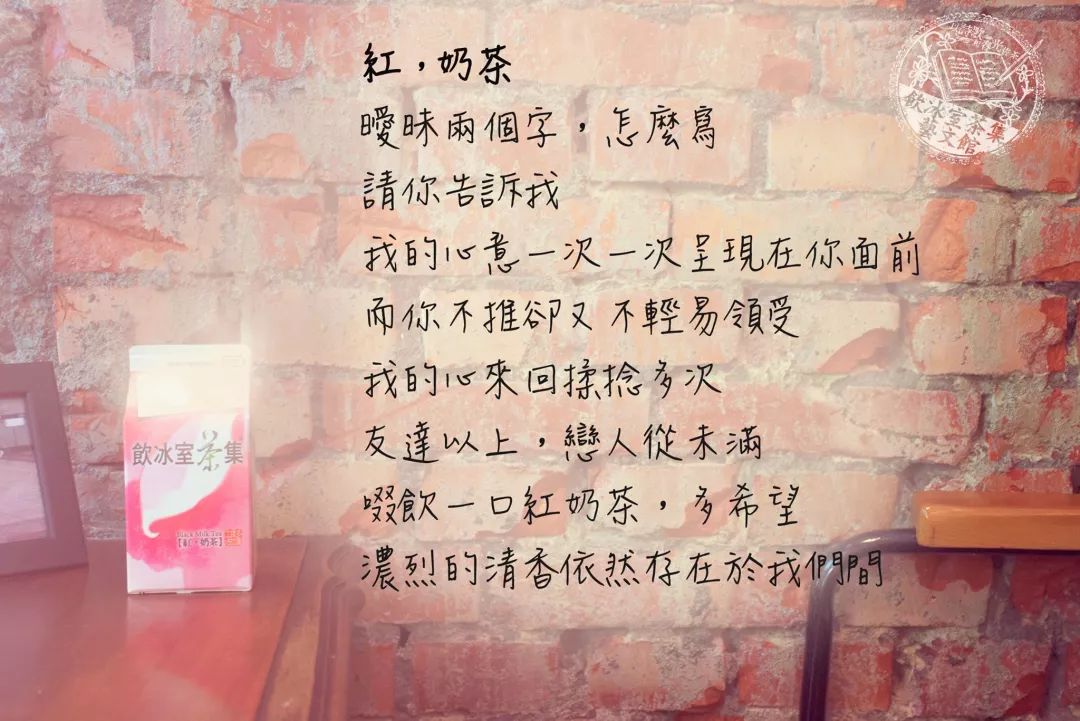 紅，奶茶
曖昧兩個字，怎麼寫
請你告訴我
我的心意一次一次呈現在你面前
而你不推卻又不輕易領受
我的心來回揉捻多次
友達以上，戀人從未滿
啜飲一口紅奶茶，多希望
濃烈的清香依然存在於我們間
飲冰室茶集
藝文館
飲冰室茶集
Black Milk Tea
【紅·奶茶】